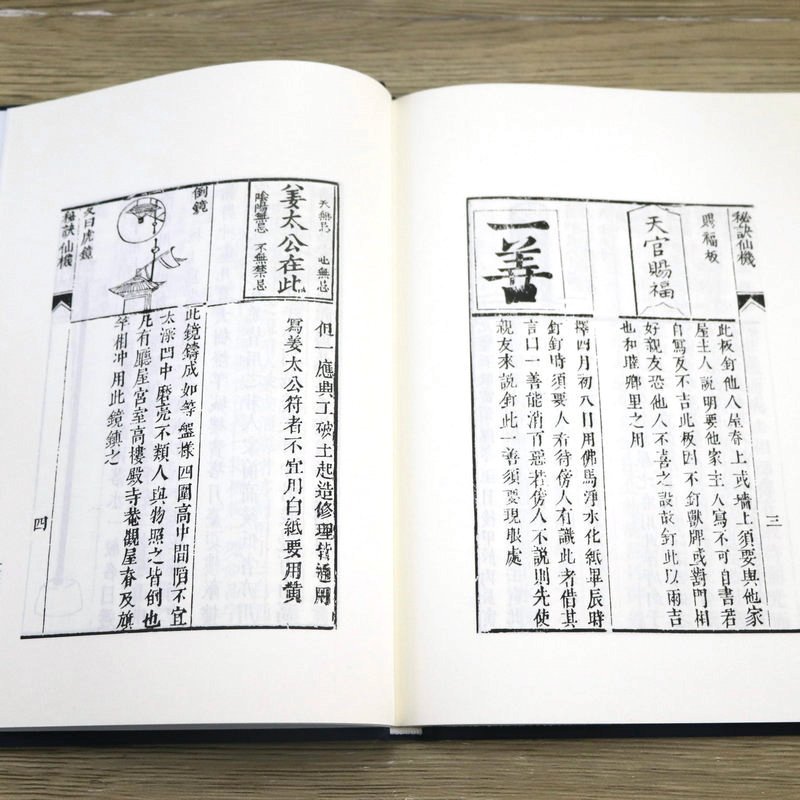 秘訣仙機
三
賜福板
天官賜福
此板釘他人屋脊上或墻上須要與他家
屋主人說明要他家主人寫不可自書若
自寫反不吉此板因不釘獸牌或對門相
好親友恐他人不喜之設故釘此以兩吉
也和睦鄉里之用
一善
擇四月初八日用佛馬淨水化紙畢辰時
釘釘時須要人看待傍人有識此者借其
言曰一善能消百惡若傍人不說則先使
親友來說釘此一善須要現眼處
天無忌 地無忌
姜太公在此
陰陽無忌 百無禁忌
但一應興工破土起造修理皆通用
寫姜太公符者不宜用白紙要用黃
倒鏡
此鏡鑄成如等盤樣四圍高中間陷不宜
太深凹中磨亮不類人與物照之皆倒也
凡有廳屋宮室高樓殿寺菴觀屋脊及旗
竿相冲用此鏡鎮之
又曰虎鏡
秘訣仙機
四